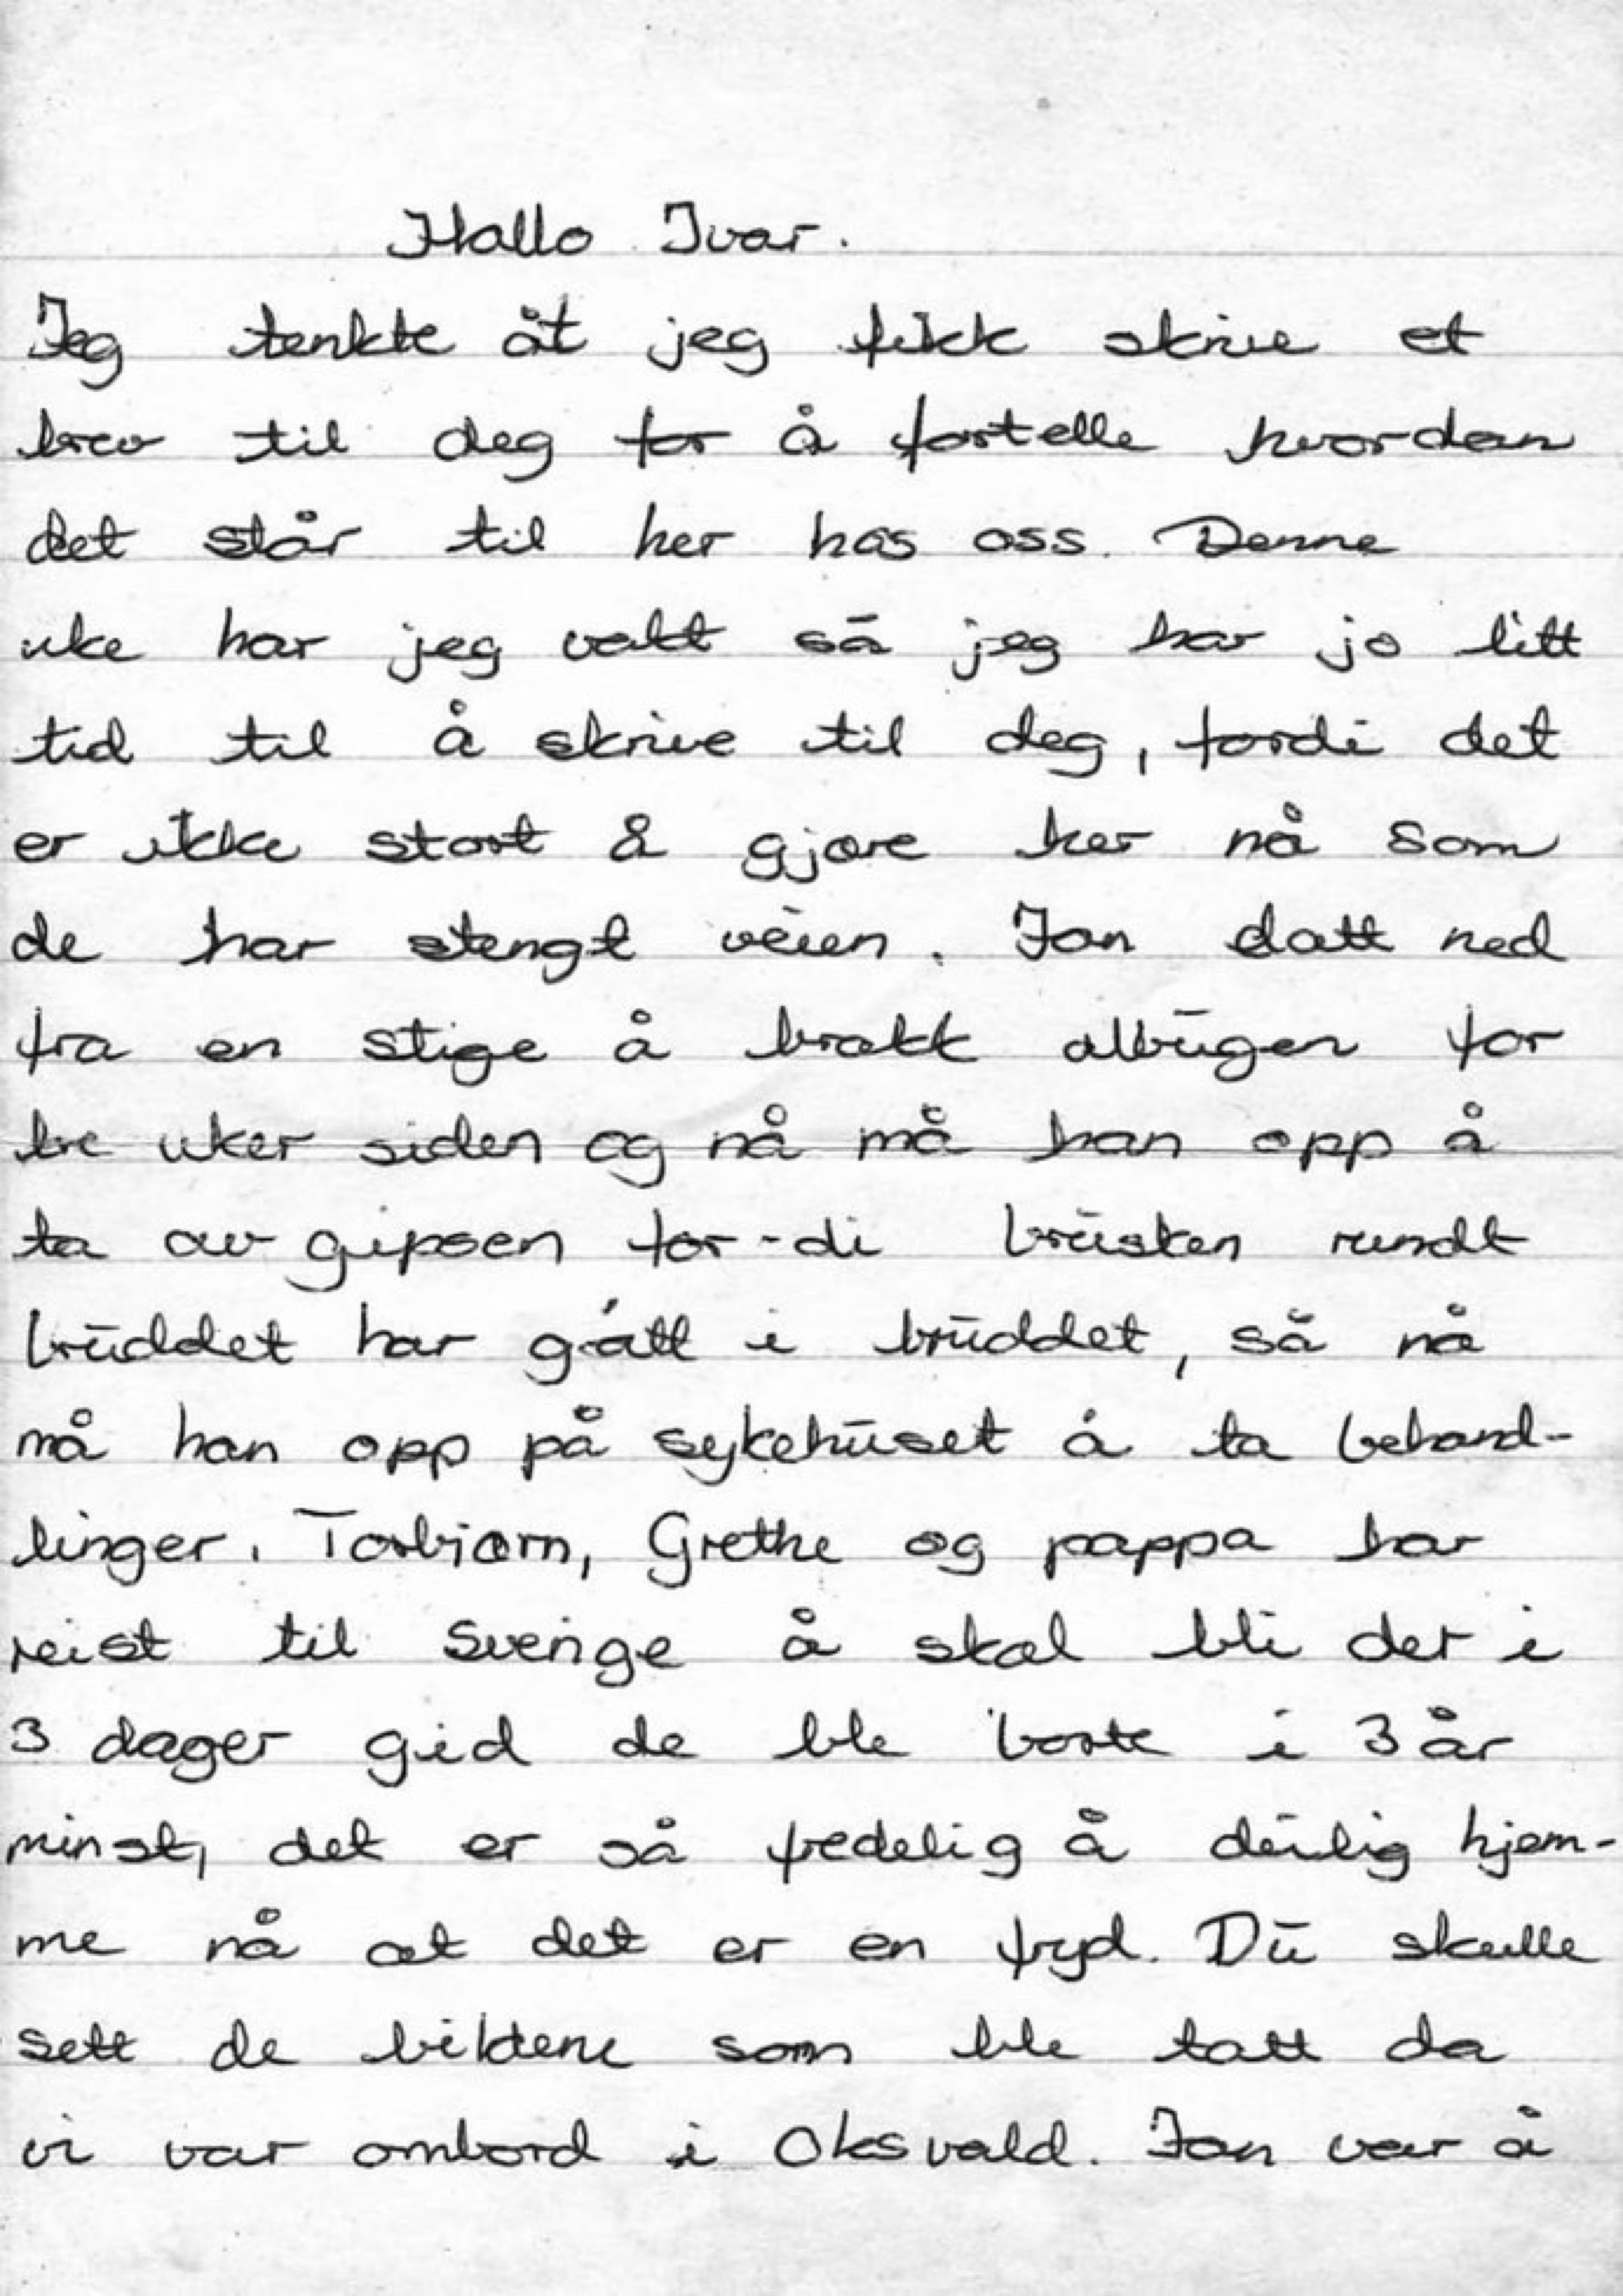 Hallo Ivar.
Jeg tenkte åt jeg fikk skrive et
brev til deg for å fortelle hvordan
det står til her hos oss. Denne
uke har jeg vakt så jeg har jo litt
tid til å skrive til deg, fordi det
er ikke stort å gjøre her nå som
de har stengt veien. Jan datt ned
fra en stige å brakk albugen for
tre uker siden og nå må han opp å
ta av gipsen for-di brusken rundt
bruddet har gått i bruddet, så nå
må han opp på sykehuset å ta behand-
linger. Torbjørn, Grethe og pappa har
reist til Sverige å skal bli der i
3 dager gid de ble borte i 3 år
minst, det er så fredelig å deilig hjem-
me nå at det er en fryd. Du skulle
sett de bildene som ble tatt da
vi var ombord i Oksvald. Jan var å